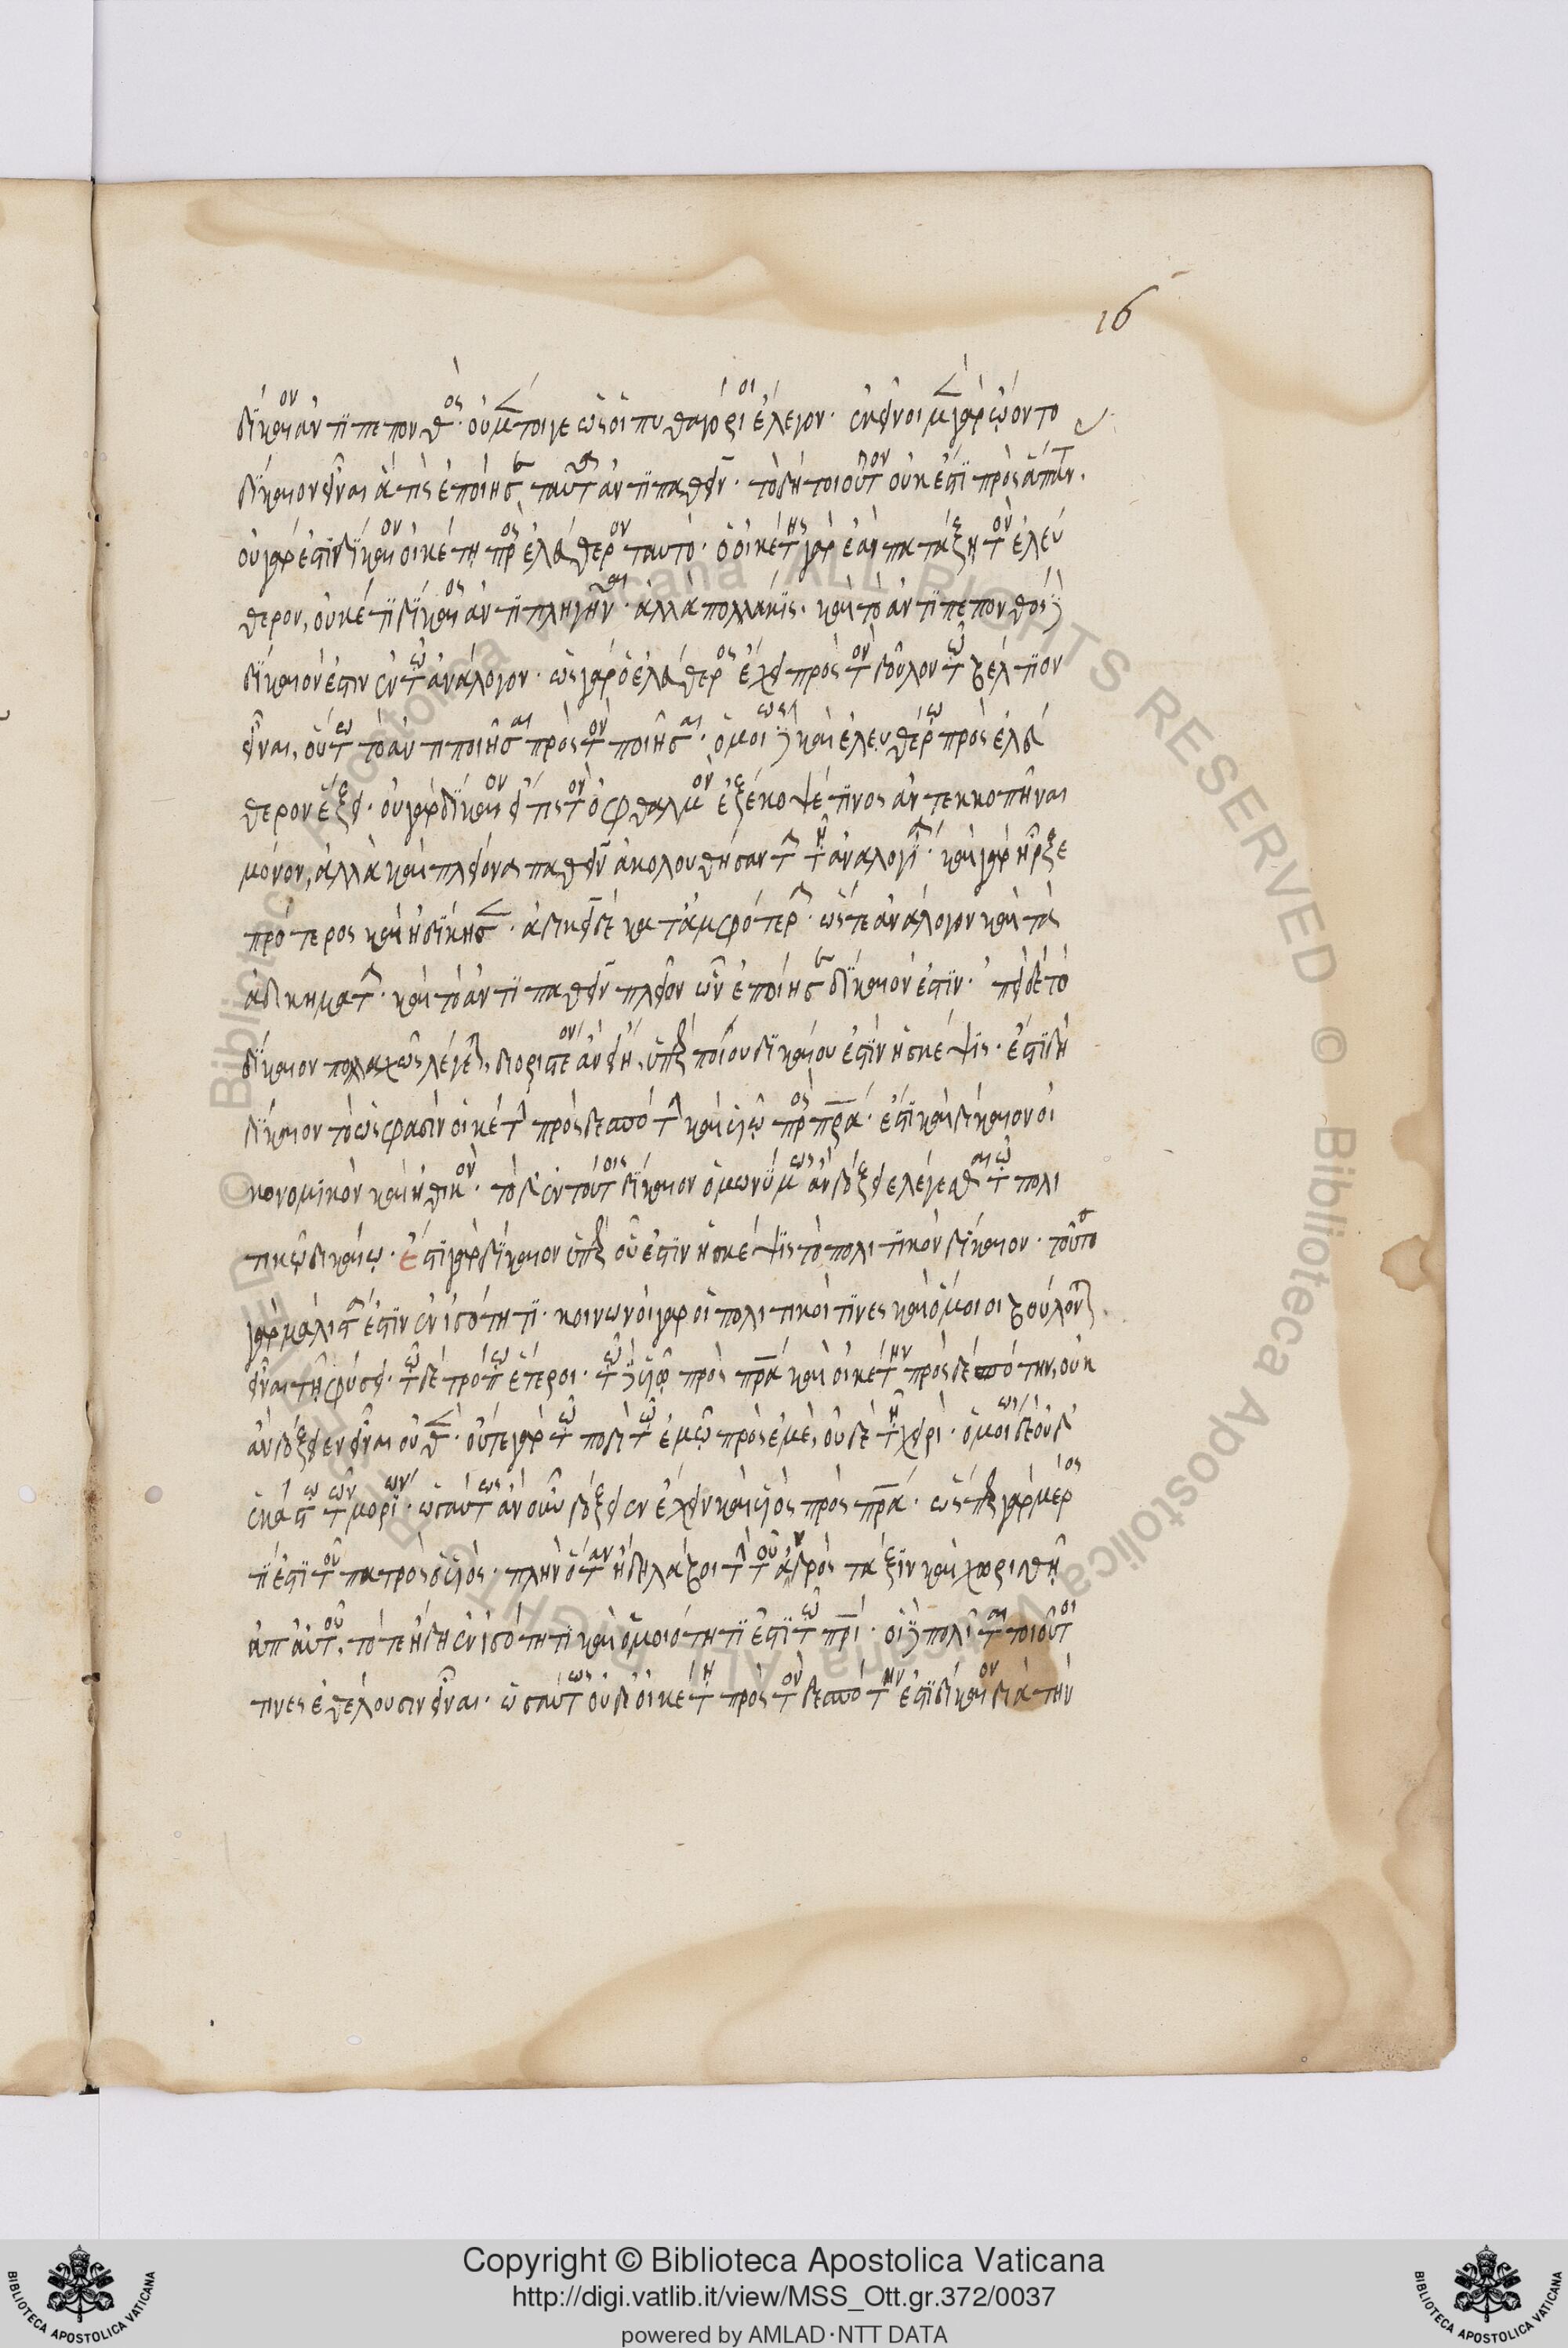 16
δίκαιον ἀντιπεπονθός· οὐ μέντοι γε ὡς οἱ πυθαγόρειοι ἔλεγον· ἐκεῖνοι μὲν γὰρ ὤοντο
δίκαιον εἶναι ἅ τις ἐποίησε ταῦτα ἀντιπαθεῖν· τὸ δὴ τοιοῦτον οὐκ ἔστι πρὸς ἅπαντας·
οὐ γάρ ἐστιν δίκαιον οἰκέτῃ πρὸς ἐλεύθερον ταυτό· ὁ οἰκέτης γὰρ ἐὰν πατάξῃ τὸν ἐλεύ
θερον, οὐκέτι δίκαιος ἀντιπληγῆναι· ἀλλὰ πολλάκις· καὶ τὸ ἀντιπεπονθὸς δὲ
δίκαιόν ἐστιν ἐν τῷ ἀνάλογον· ὡς γὰρ ὁ ἐλεύθερος ἔχει πρὸς τὸν δοῦλον τῷ βέλτιον
εἶναι, οὕτω τὸ ἀντιποιῆσαι πρὸς τὸν ποιῆσαι· ὁμοίως δὲ καὶ ἐλευθέρῳ πρὸς ἐλεύ
θερον ἕξει· οὐ γὰρ δίκαιον εἴ τις τὸν ὀφθαλμὸν ἐξέκοψέ τινος ἀντεκκοπῆναι
μόνον, ἀλλὰ καὶ πλείονα παθεῖν ἀκολουθήσαντα τῇ ἀναλογίᾳ· καὶ γὰρ ἦρξε
πρότερος καὶ ἠδίκησεν· ἀδικεῖ δὲ κατ' ἀμφότερα· ὥστε ἀνάλογον καὶ τὰ
ἀδικήματα· καὶ τὸ ἀντιπαθεῖν πλεῖον ὧν ἐποίησε δίκαιόν ἐστιν· ἐπεὶ δὲ τὸ
δίκαιον πολλαχῶς λέγεται, διοριστέον ἂν εἴη, ὑπὲρ ποίου δικαίου ἐστὶν ἡ σκέψις· ἔστι δὴ
δίκαιον τὸ ὡς φασὶν οἰκέτῃ πρὸς δεσπότην καὶ υἱῷ πρὸς πρα· ἔστι καὶ δίκαιον οἰ
κονομικὸν καὶ ἠθικόν· τὸ δ' ἐν τούτοις δίκαιον ὁμωνύμως ἂν δόξειε λέγεσθαι τῷ πολι
τικῷ δικαίῳ· ἔστι γὰρ δίκαιον ὑπὲρ οὗ ἐστιν ἡ σκέψις τὸ πολιτικὸν δίκαιον· τοῦτο
γὰρ μάλιστα ἐστὶν ἐν ἰσότητι· κοινωνοὶ γὰρ οἱ πολιτικοί τινες καὶ ὅμοιοι βούλονται
εἶναι τῇ φύσει· τῷ δὲ τρόπῳ ἕτεροι· τῷ δὲ υἱῷ πρὸς πρα καὶ οἰκέτην πρὸς δεσπότην, οὐκ
ἂν δόξειεν εἶναι οὐδέν· οὔτε γὰρ τῷ ποδὶ τῷ ἐμῷ πρὸς ἐμέ, οὐδὲ τῇ χειρί· ὁμοίως δὲ οὐδ'
ἑκάστῳ τῶν μορίων· ὡσαύτως ἂν οὖν δόξειεν ἔχειν καὶ υἱὸς πρὸς πρα· ὥσπερ γὰρ μέρος
τί ἐστι τοῦ πατρὸς ὁ υἱός· πλὴν ὅταν ἤδη λάβοι τὴν τοῦ ἀνδρὸς τάξιν καὶ χωρισθῇ
ἀπ' αὐτοῦ, τότε ἤδη ἐν ἰσότητι καὶ ὁμοιότητι ἐστὶ τῷ πρι· οἱ δὲ πολῖται τοιοῦτοι
τινες ἐθέλουσιν εἶναι· ὡσαύτως οὐδ' οἰκέτῃ πρὸς τὸν δεσπότην ἐστὶ δίκαιον διὰ τὴν
Copyright © Biblioteca Apostolica Vaticana
http://digi.vatlib.it/view/MSS_Ott.gr.372/0037
powered by AMLAD·NTT DATA